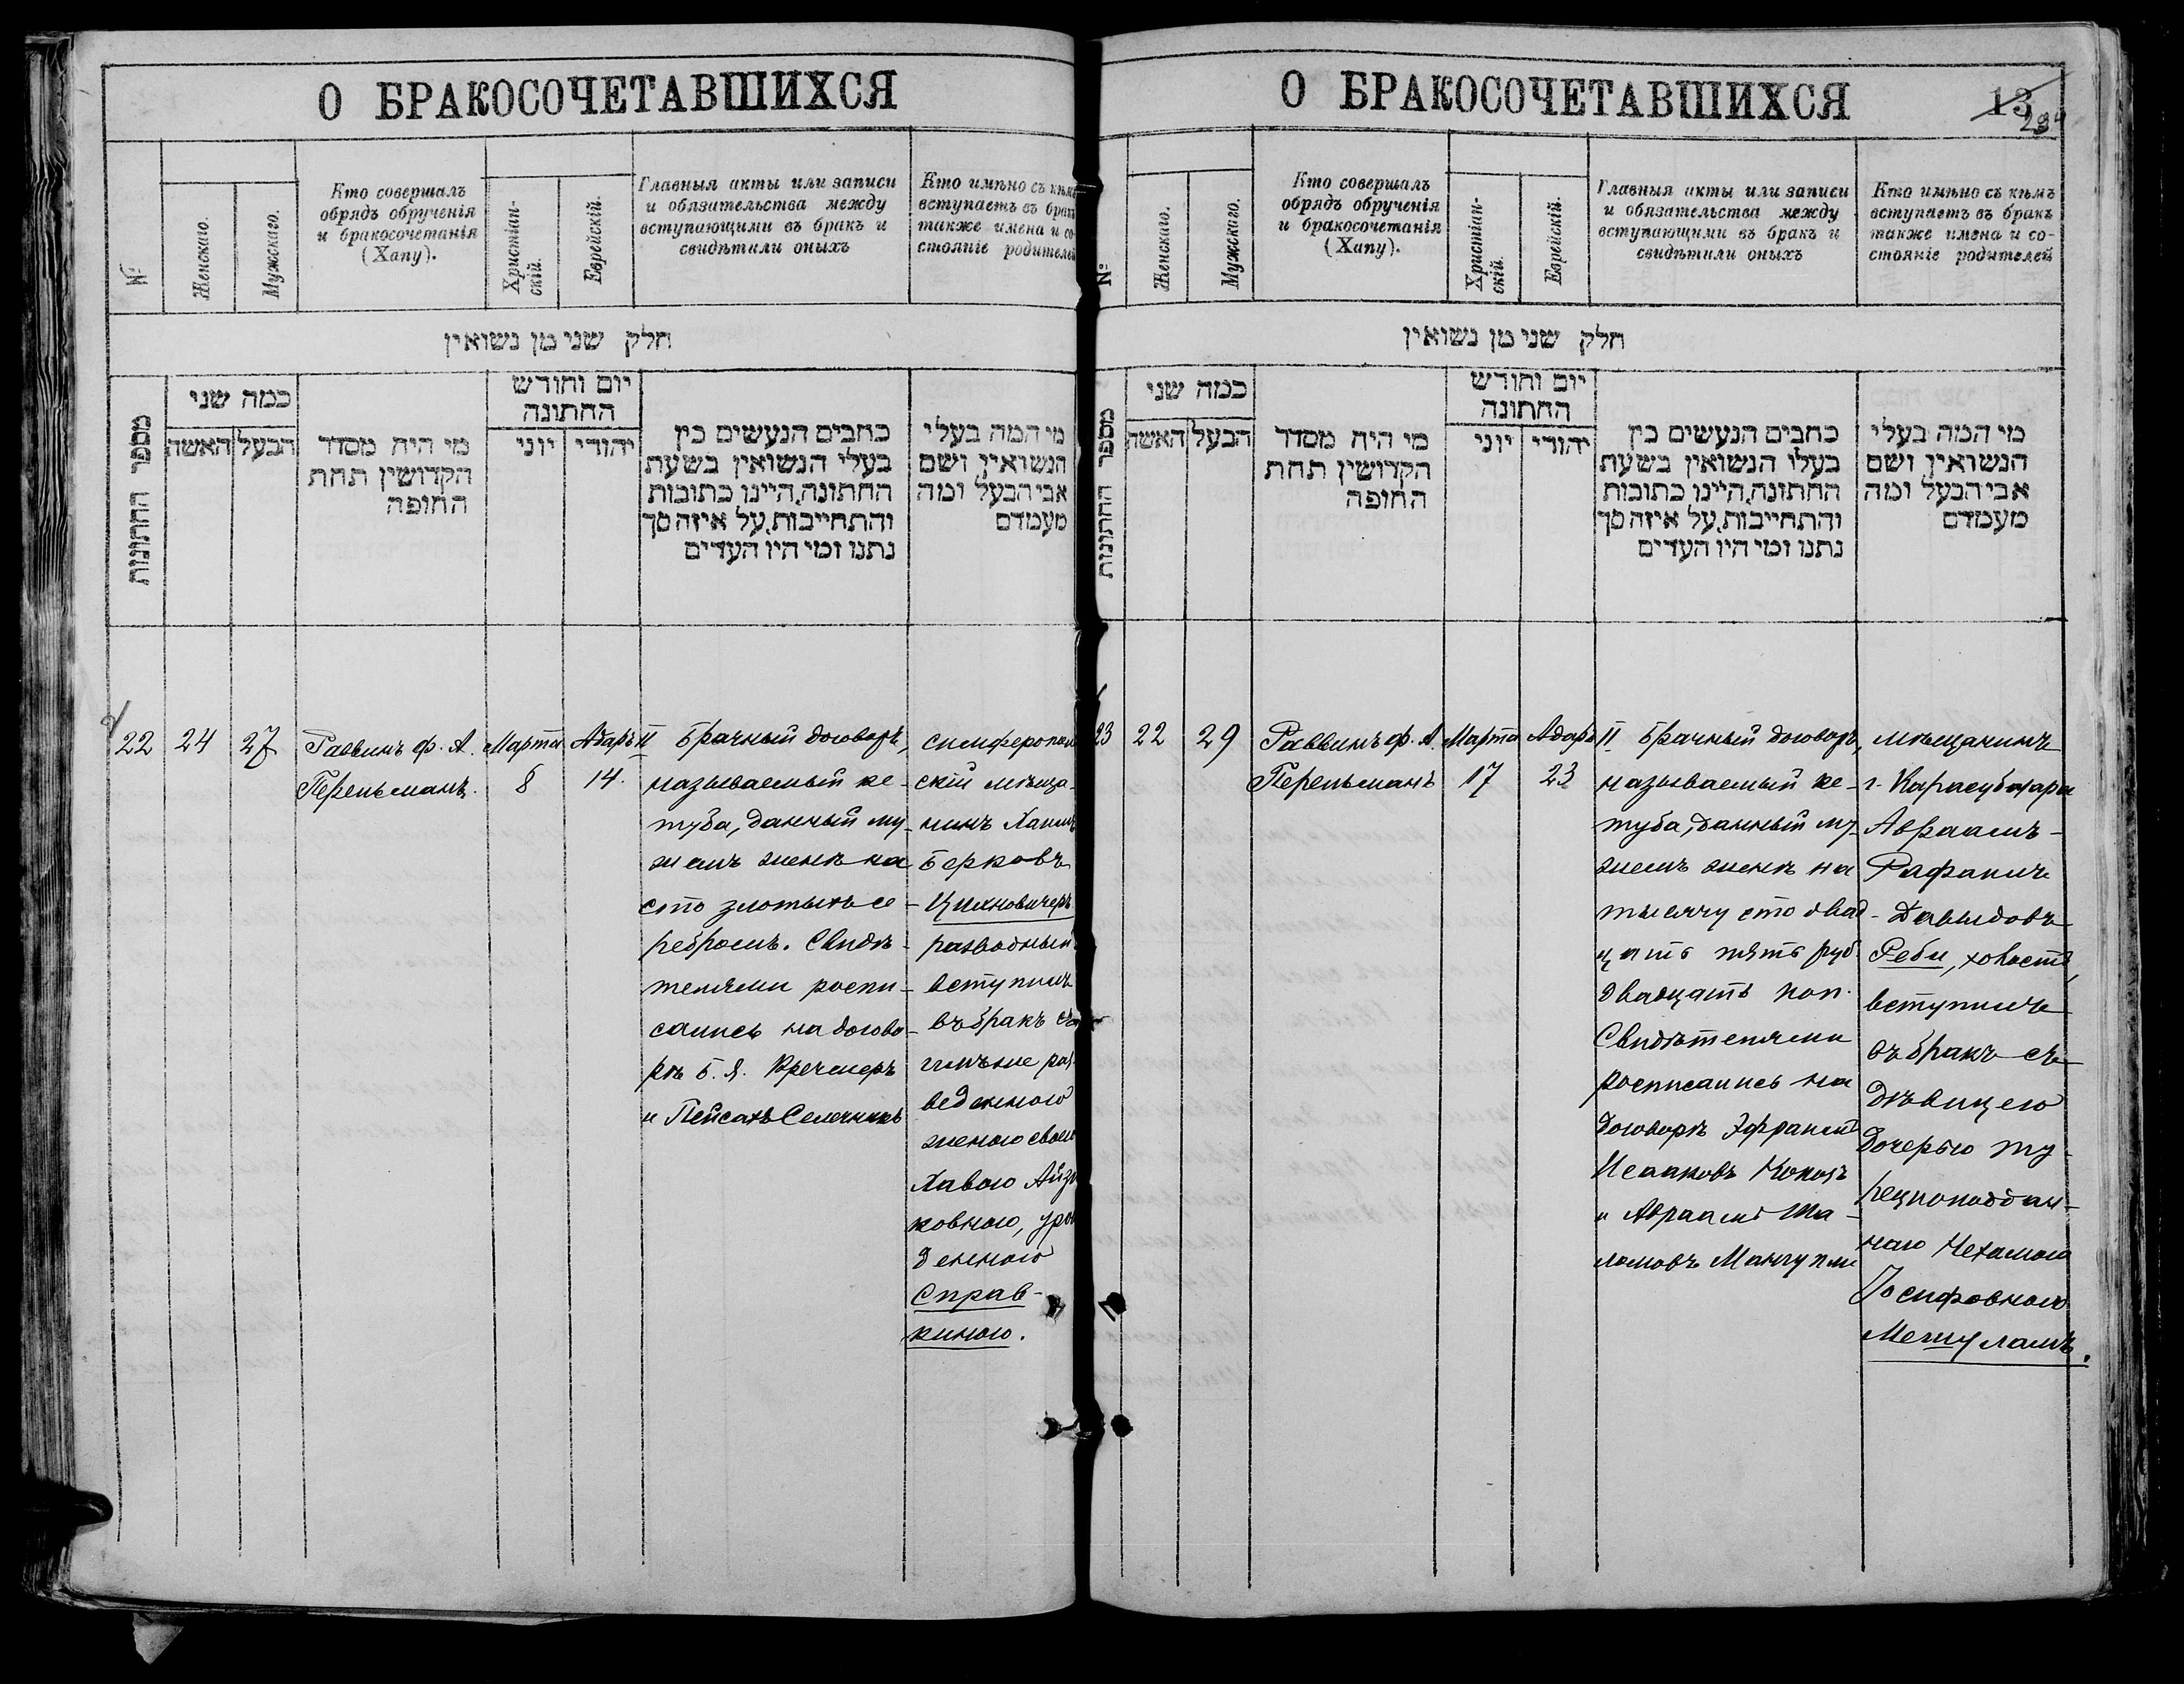 О БРАКОСОЧЕТАВШИХСЯ
№
Женскаго.
Мужскаго.
Кто совершалъ
обрядъ обрученія
и бракосочетанія
(Хапу).
Христіан-
скій.
Еврейскій.
Главныя акты или записи
и обязательства между
вступающими въ бракъ и
свидѣтили оныхъ
Кто имѣно съ кѣмъ
вступаетъ въ бракъ
также имена и со-
стояніе родителей
חלק שני מן נשואין
מספר החתונות
כמה שני
האשה
הבעל
מי היה מסדר
הקדושין תחת
החופה
יום וחודש
החתונה
יוני
יהודי
כתבים הנעשים בין
בעלי הנשואין בשעת
החתונה, היינו כתובות
והתחייבות, על איזה סך
נתנו ומי היו העדים
מי המה בעלי
הנשואין ושם
אבי הבעל ומה
מעמדם
22
24
27
Раввинъ Ф. А.
Перельманъ.
Марта
8
Адаръ II
14.
Брачный договоръ,
называемый ке-
туба, данный му-
жемъ женѣ на
сто злотыхъ се-
ребромъ. Свидѣ-
телями роспи-
сались на догово-
рѣ Б. Я. Кречмеръ
и Пейсахъ Селечникъ
симферополь
скій мѣща-
нинъ Хаимъ
Берковъ
Цихновичеръ
разводный
вступилъ
въ бракъ съ
раз-
веденною
женою своею
Хавою Айзи
ковною, урож
денною
Справ-
киною.
О БРАКОСОЧЕТАВШИХСЯ
13
234
№
Женскаго.
Мужскаго.
Кто совершалъ
обрядъ обрученія
и бракосочетанія
(Хапу).
Христіан-
скій.
Еврейскій.
Главныя акты или записи
и обязательства между
вступающими въ бракъ и
свидѣтили оныхъ
Кто имѣно съ кѣмъ
вступаетъ въ бракъ
также имена и со-
стояніе родителей
חלק שני מן נשואין
מספר החתונות
כמה שני
האשה
הבעל
מי היה מסדר
הקדושין תחת
החופה
יום וחודש
החתונה
יוני
יהודי
כתבים הנעשים בין
בעלי הנשואין בשעת
החתונה, היינו כתובות
והתחייבות, על איזה סך
נתנו ומי היו העדים
מי המה בעלי
הנשואין ושם
אבי הבעל ומה
מעמדם
23
22
29
Раввинъ Ф. А.
Перельманъ
Марта
17
Адаръ II
23
Брачный договоръ,
называемый ке-
туба, данный му-
жемъ женѣ на
тысячу сто двад-
цать пять руб.
двадцать коп.
Свидѣтелями
росписались на
договорѣ Эфраимъ
Исааковъ Кокозъ
и Авраамъ Ша-
ломовъ Мангупли
мѣщанинъ
г. Карасубазара
Авраамъ-
Рафаилъ
Давыдовъ
Реби, холостъ,
вступилъ
въ бракъ съ
дѣвицею
дочерью ту-
рецкоподдан-
наго Нехамою
Іосифовною
Мешуламъ.